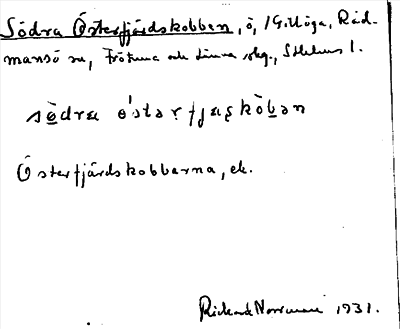 Södra Österfjärdskobben, ö, i Gillöga, Räd-
mansö sn, Frötuna och Länna skg., Sthlms l.
södra östərfjaskòbən
Österfjärdskobbarna, ek.
Rickard Norrman 1931.